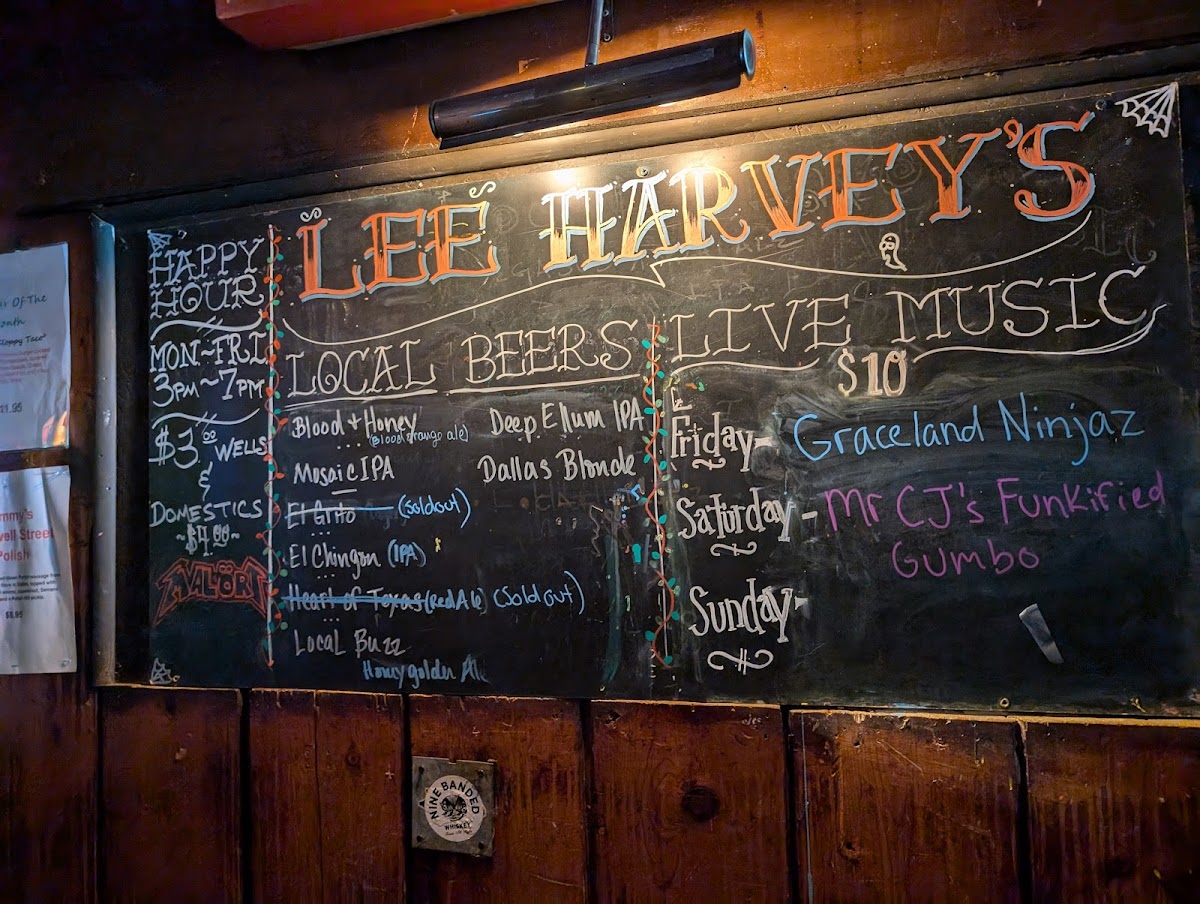 LEE HARVEY'S
HAPPY
HOUR
MON~FRI
3PM~7PM
$3.00 WELLS
&
DOMESTICS
~$4.00~
MALÖRT
LOCAL BEERS
Blood + Honey
(Blood orange ale)
Mosaic IPA
El Grito (Sold out)
El Chingon (IPA)
Heart of Texas (Red Ale) (Sold out)
Local Buzz
Honey golden Ale
Deep Ellum IPA
Dallas Blonde
LIVE MUSIC
$10
Friday- Graceland Ninjaz
Saturday- Mr CJ's Funkified
Gumbo
Sunday-
Of The
Sloppy Taco
11.95
Polish
$8.95
NINE BANDED
WHISKEY